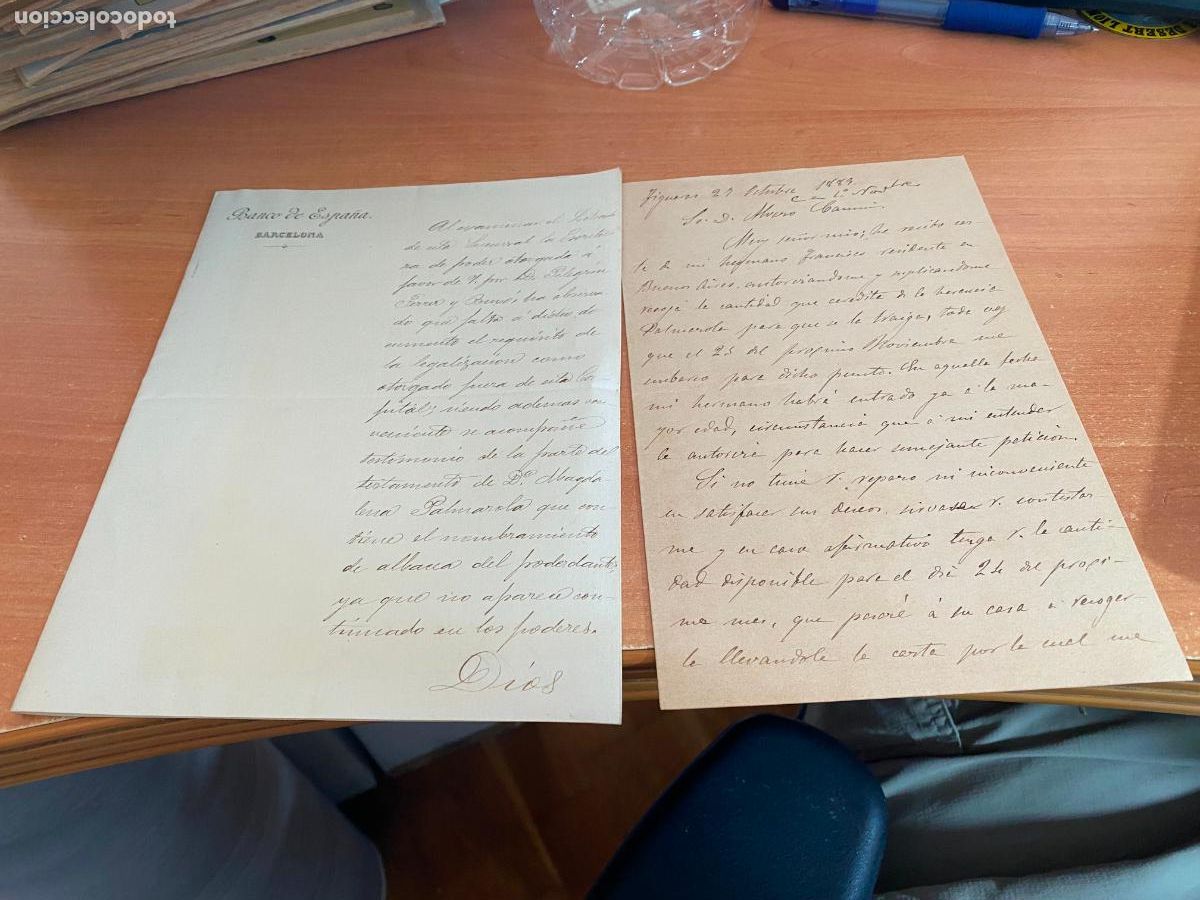 todocoleccion
DESERT
Banco de España.
BARCELONA
Al examinar el Letrado
de esta Sucursal la Escritu-
ra de poder otorgado á
favor de V. por D. Pelegrin
y ha observa-
do que falta á dicho do-
cumento el requisito de
la legalizacion como
otorgado fuera de esta Ca-
pital; siendo ademas con-
veniente se acompañe
testimonio de la parte del
testamento de Dª Magda-
lena Palmarola que con-
tiene el nombramiento
de albacea del poderdante,
ya que no aparece con-
tinuado en los poderes.
Dios
Figueras 27 Octubre 1883
Sr. D. Alvaro
Muy señor mio; he recibido car-
ta de mi hermano Francisco residente en
Buenos Aires, autorizandome y suplicandome
recoja la cantidad que acredita de la herencia
Palmerola para que se la traiga, toda vez
que el 25 del proximo Noviembre me
embarco para dicho punto. En aquella fecha
mi hermano habrá entrado ya á la ma-
yor edad, circunstancia que á mi entender
le autoriza para hacer semejante peticion.
Si no tiene V. reparo ni inconveniente
en satisfacer sus deseos, sirvase V. contestar-
me y en caso afirmativo tenga V. la canti-
dad disponible para el dia 24 del proxi-
mo mes, que pasaré á su casa a recoger-
la llevandole la carta por la cual me